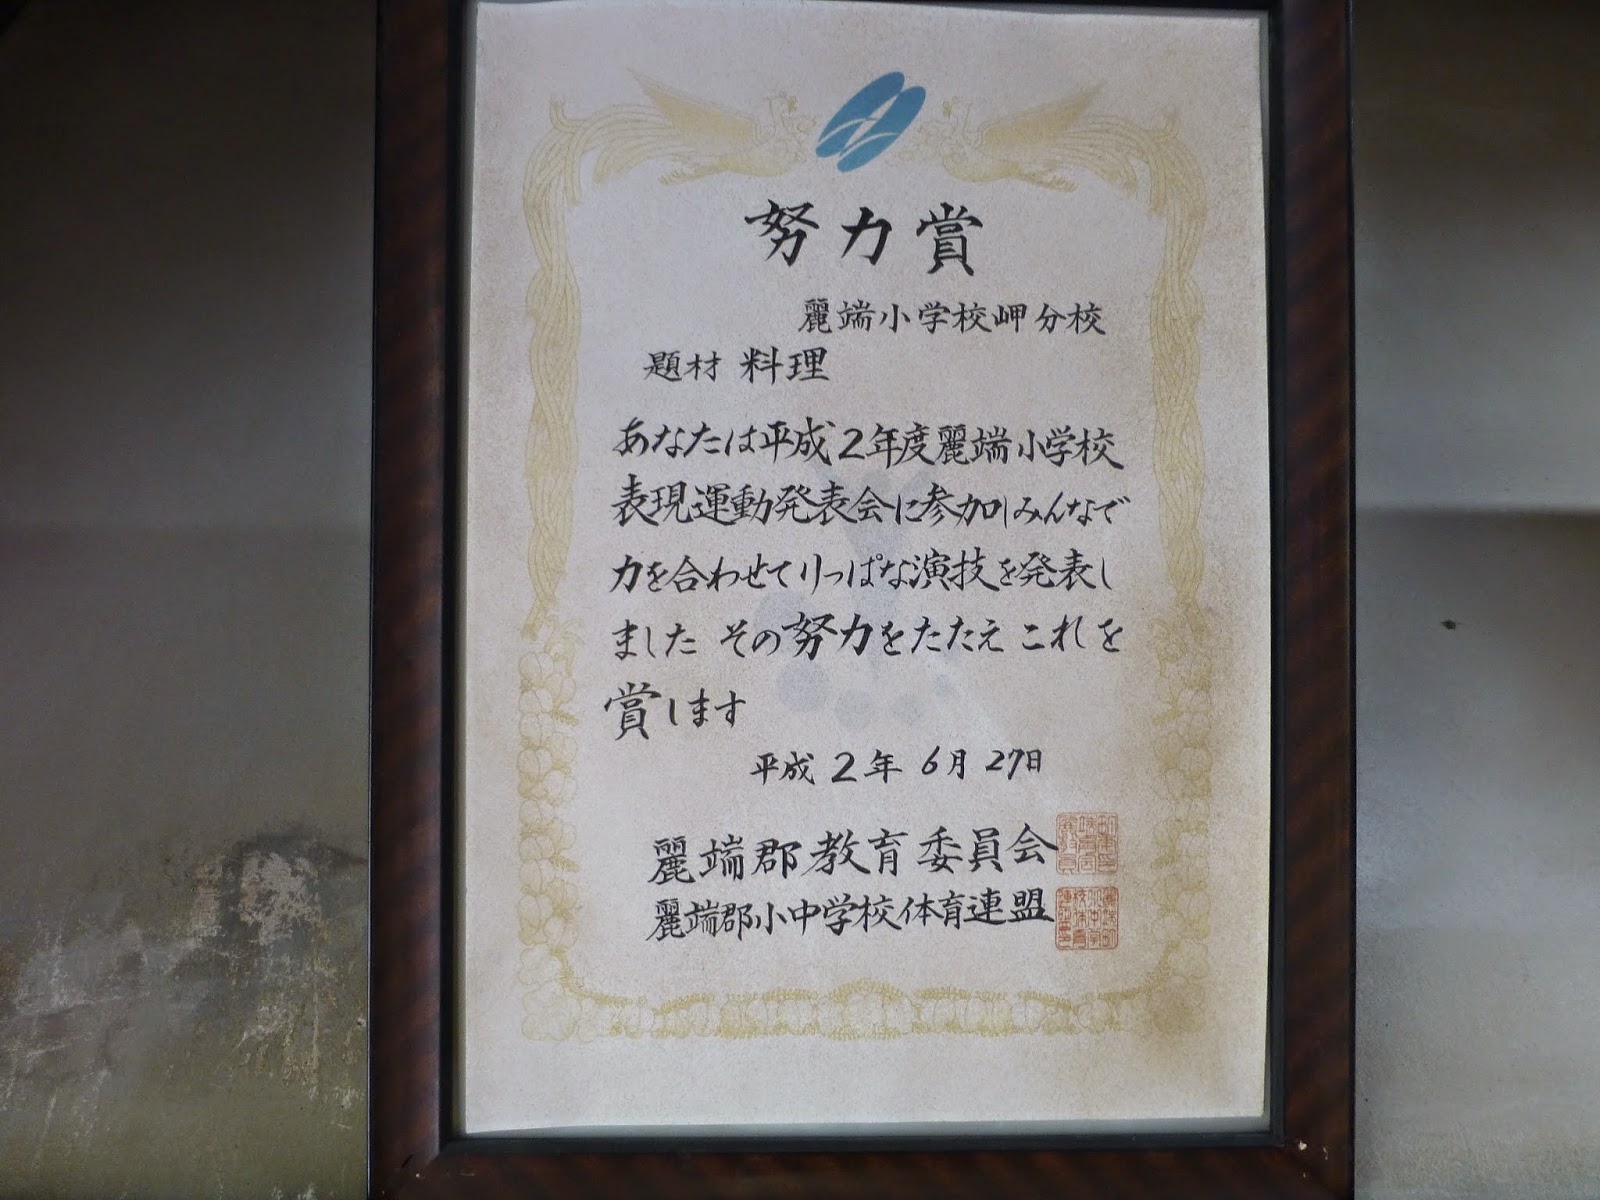 努力賞
麗端小学校岬分校
題材 料理
あなたは平成2年度麗端小学校
表現運動発表会に参加しみんなで
力を合わせてりっぱな演技を発表し
ました その努力をたたえ これを
賞します
平成 2年 6月 27日
麗端郡教育委員会
麗端郡小中学校体育連盟